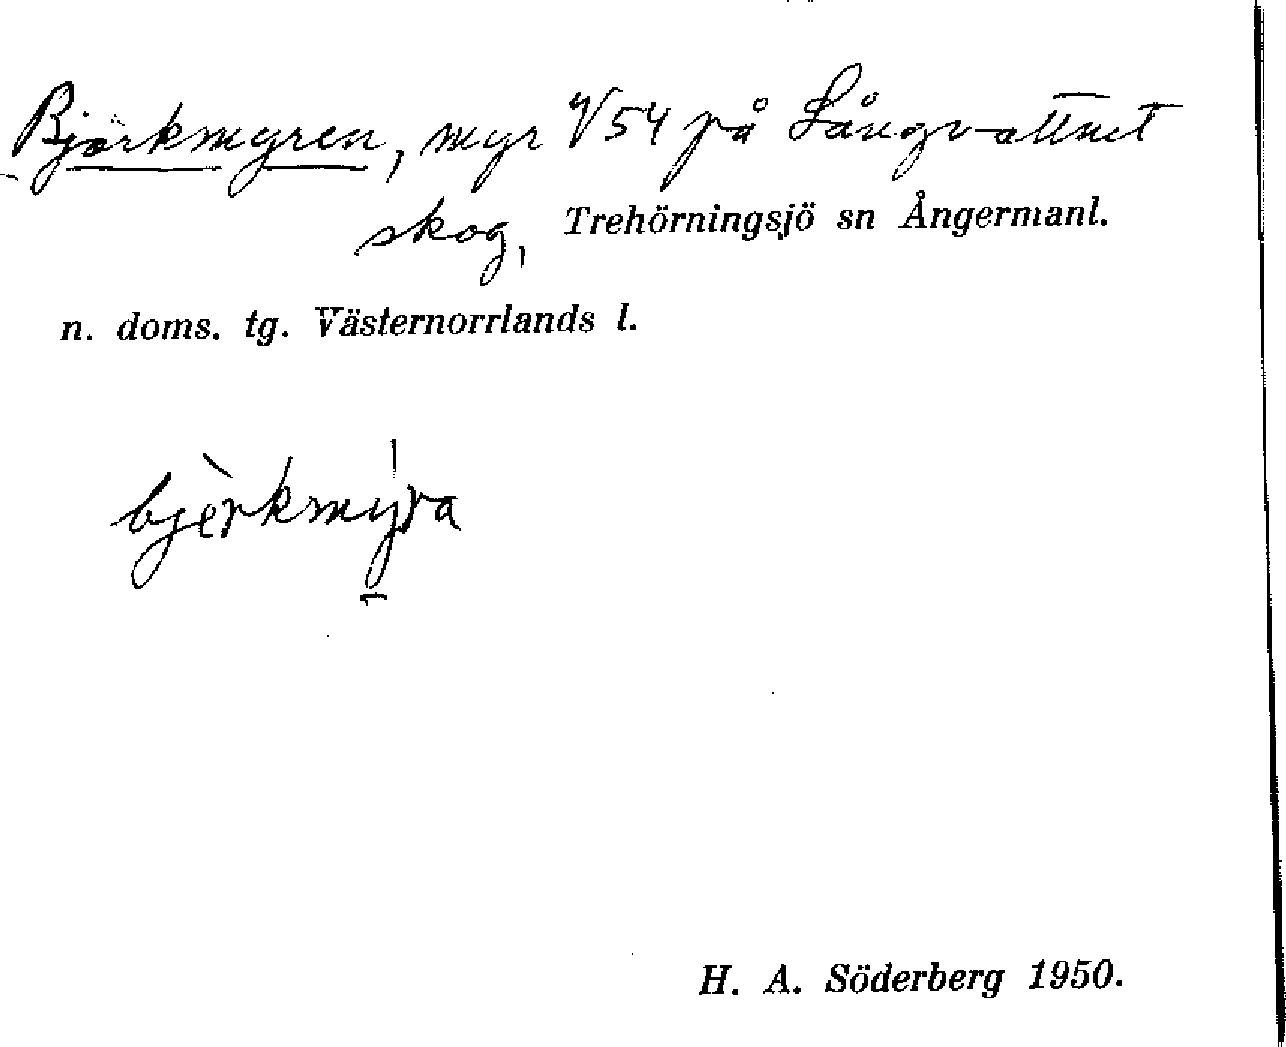 Björkmyren, myr V54 på Långvattnet
skog, Trehörningsjö sn Ångermanl.
n. doms. tg. Västernorrlands l.
bjèrkmyra
H. A. Söderberg 1950.